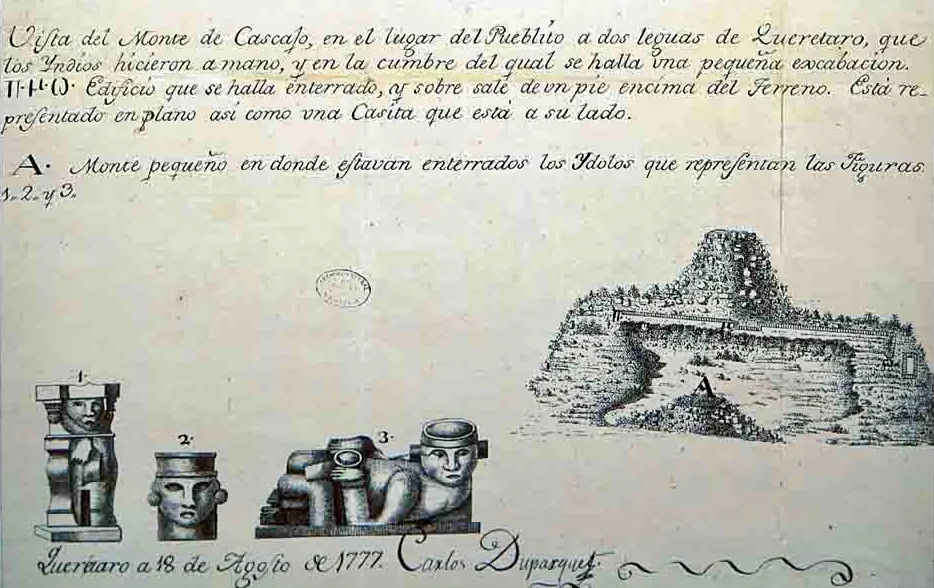 Vista del Monte de Cascajo, en el lugar del Pueblito a dos leguas de Queretaro, que
los Yndios hicieron a mano, y en la cumbre del qual se halla vna pequeña excabacion.
Π·Μ·Ω· Edificio que se halla enterrado, y sobre sale de vn pie encima del Terreno. Está re-
presentado en plano asi como vna Casita que está a su lado.
A. Monte pequeño en donde estavan enterrados los Ydolos que representan las Figuras.
1., 2., y 3.,
A
1.
2.
3.
Queretaro a 18 de Agosto de 1777. Carlos Duparquet.